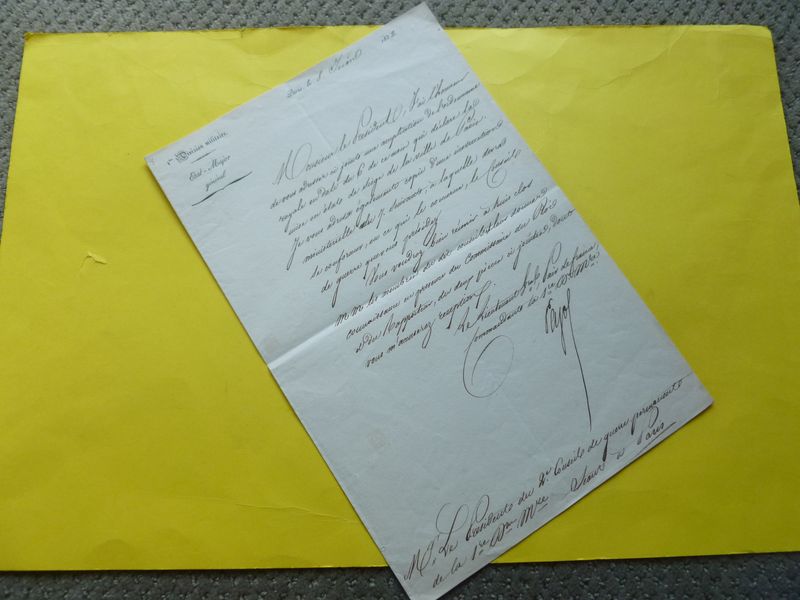 Paris, le 8 Juin 1832
1re Division militaire.
Etat-Major
général
Monsieur le Président, J'ai l'honneur
de vous adresser ci-jointe une ampliation de l'ordonnance
royale en date du 6 de ce mois qui déclare la
mise en état de siège de la ville de Paris.
Je vous adresse également copie d'une instruction
ministérielle du 7 suivant, à laquelle devra
se conformer, en ce qui le concerne, le Conseil
de guerre que vous présidez.
Vous voudrez bien réunir à huis clos
MM. les membres du dit conseil et leur donner
connaissance en présence du Commissaire du Roi
et du Rapporteur, des deux pièces ci-jointes, dont
vous m'accuserez réception.
Le Lieutenant Gal Pair de france
Commandant la 1re Don Mre
Pajol
Mr Le Président du 2e Conseil de guerre permanent
de la 1re Don Mre Séant à Paris